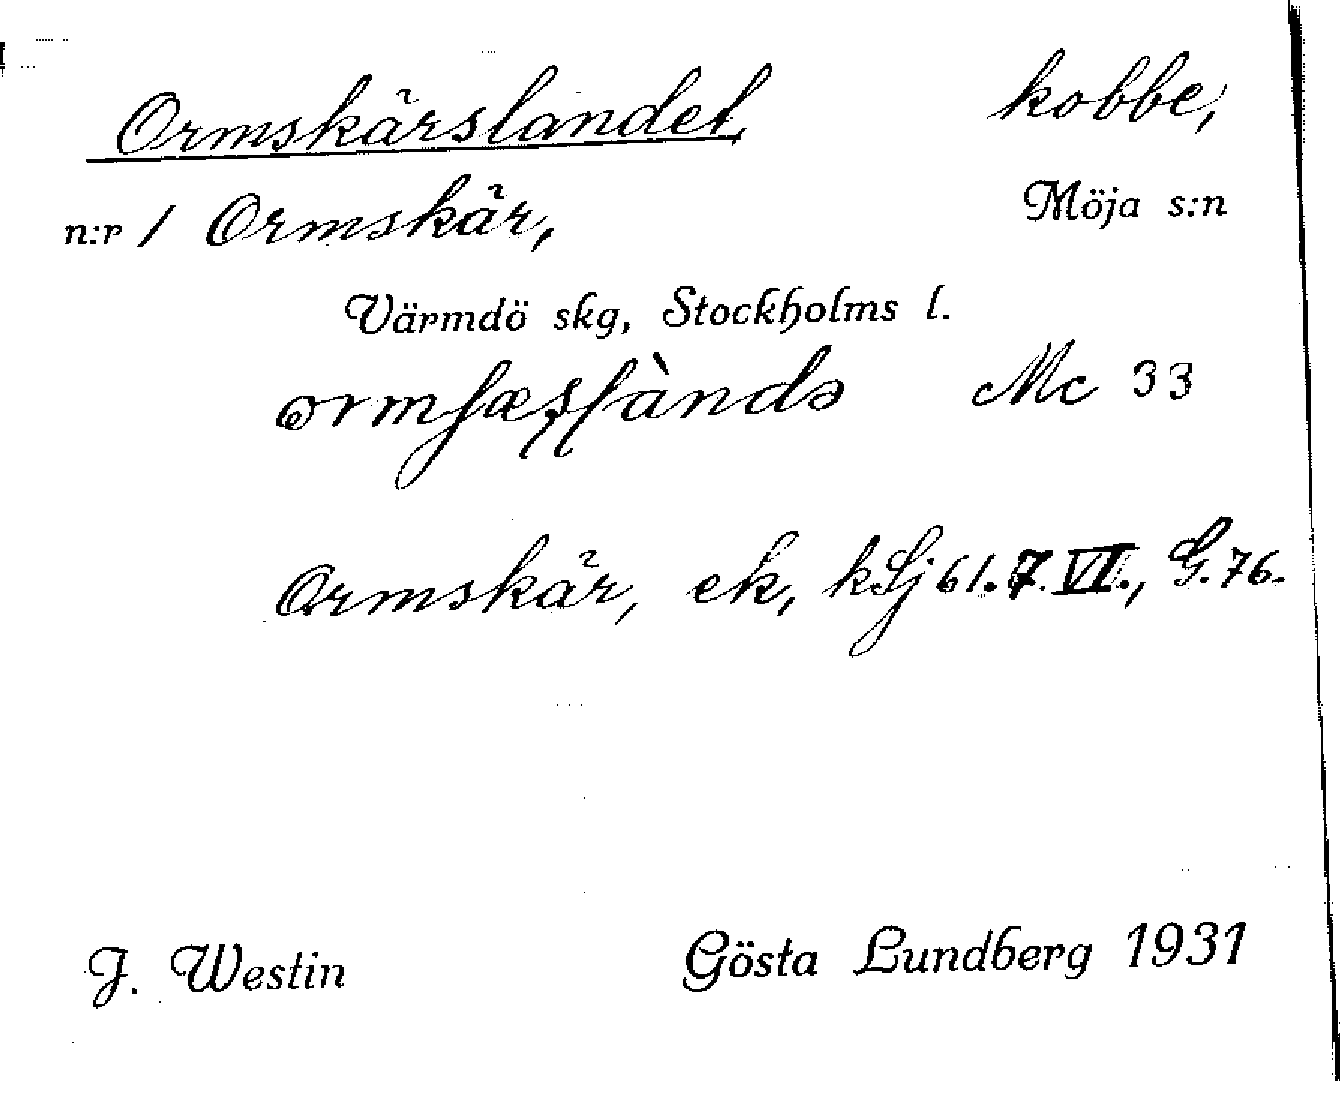 Ormskärslandet, kobbe,
n:r 1 Ormskär, Möja s:n
Värmdö skg, Stockholms l.
Mc 33
Ormskär, ek, kLj 61.7.VI., G.76.
J. Westin Gösta Lundberg 1931